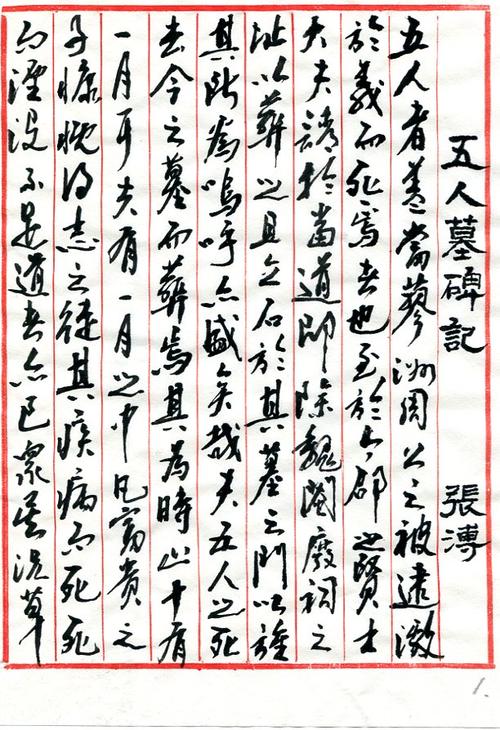 五人墓碑記 張溥
五人者蓋當蓼洲周公之被逮激
於義而死焉者也至於今郡之賢士
大夫請於當道即除魏閹廢祠之
址以葬之且立石於其墓之門以旌
其所為嗚呼亦盛矣哉夫五人之死
去今之墓而葬焉其為時止十有
一月耳夫有一月之中凡富貴之
子慷慨得志之徒其疾病而死死
而湮没不足道者亦已眾矣況草
1.